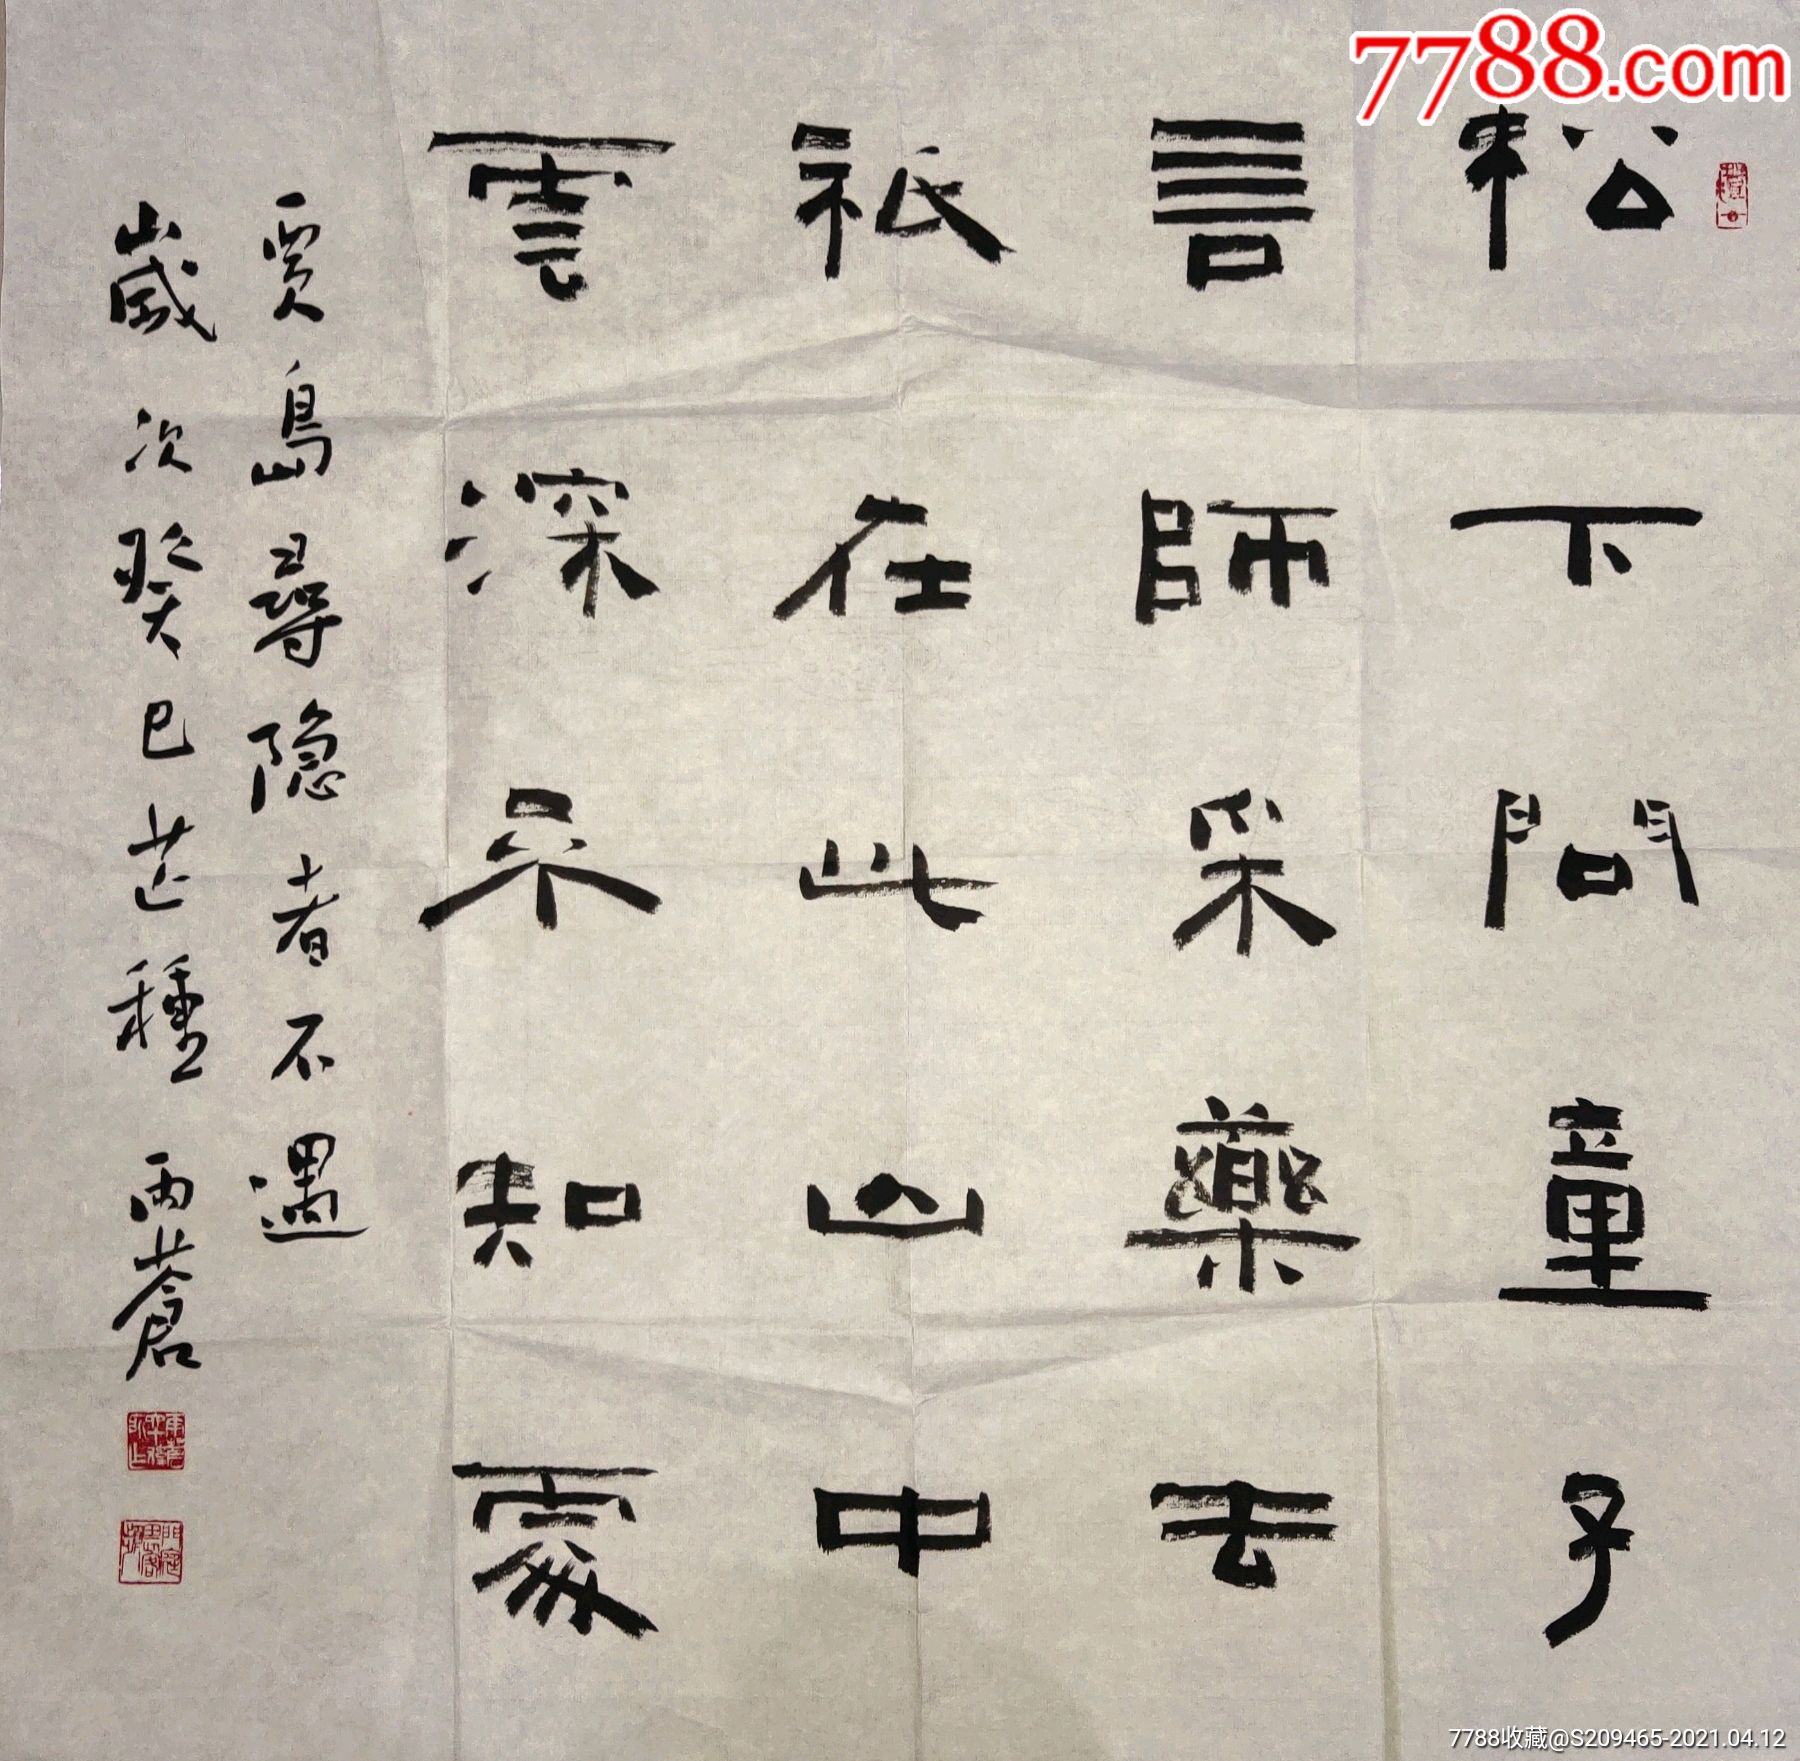 7788.com
松下問童子
言師采藥去
祇在此山中
雲深不知處
賈島尋隐者不遇
嵗次癸巳芒種 雨蒼
7788收藏@S209465-2021.04.12